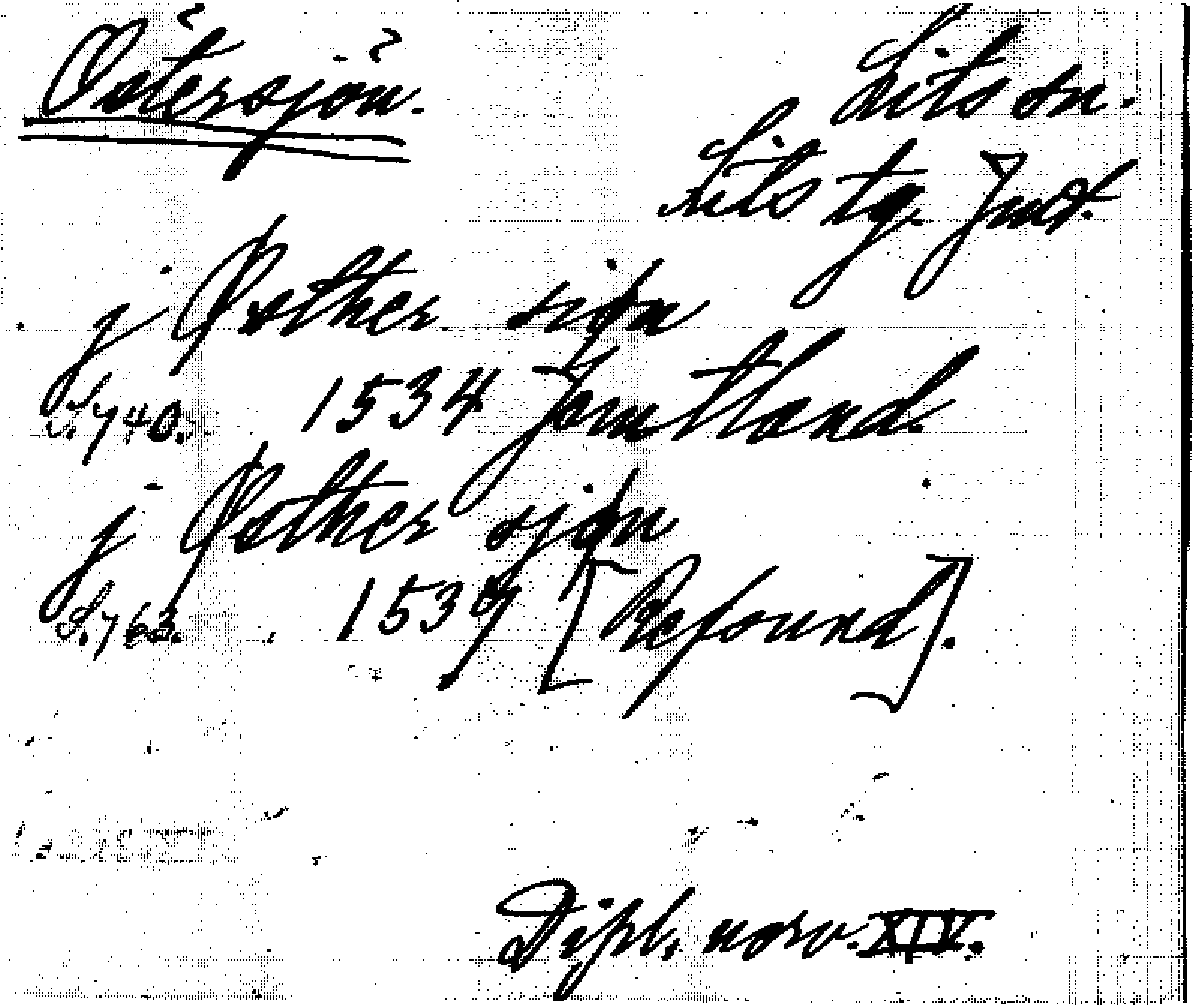 Östersjön.
Lits sn.
Lits tg. Jmtl.
j Østher siøn
S. 740. 1534 Jemtland.
j Østher sjøn
S. 763. 1537 [Refsund].
Dipl. norv. XIV.